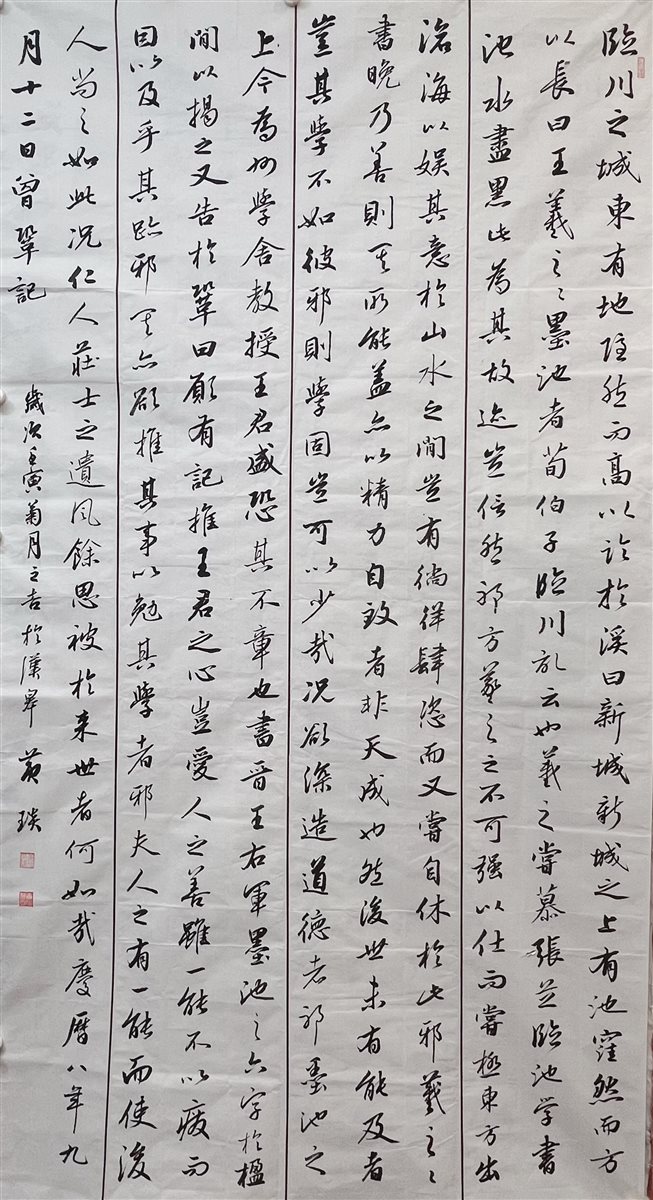 臨川之城東有地隱然而高以臨於溪曰新城新城之上有池窪然而方
以長曰王羲之之墨池者荀伯子臨川記云也羲之嘗慕張芝臨池學書
池水盡黑此為其故迹豈信然邪方羲之之不可强以仕而嘗極東方出
滄海以娱其意於山水之間豈有徜徉肆恣而又嘗自休於此邪羲之之
書晚乃善則其所能蓋亦以精力自致者非天成也然後世未有能及者
豈其學不如彼邪則學固豈可以少哉况欲深造道德者邪墨池之
上今為州學舍教授王君盛恐其不章也書晋王右軍墨池之六字於楹
間以揭之又告於鞏曰願有記推王君之心豈愛人之善雖一能不以廢而
因以及乎其跡邪其亦欲推其事以勉其學者邪夫人之有一能而使後
人尚之如此况仁人莊士之遺風餘思被於来世者何如哉慶曆八年九
月十二日曾鞏記
歲次壬寅菊月之吉於漢皋 黄琰